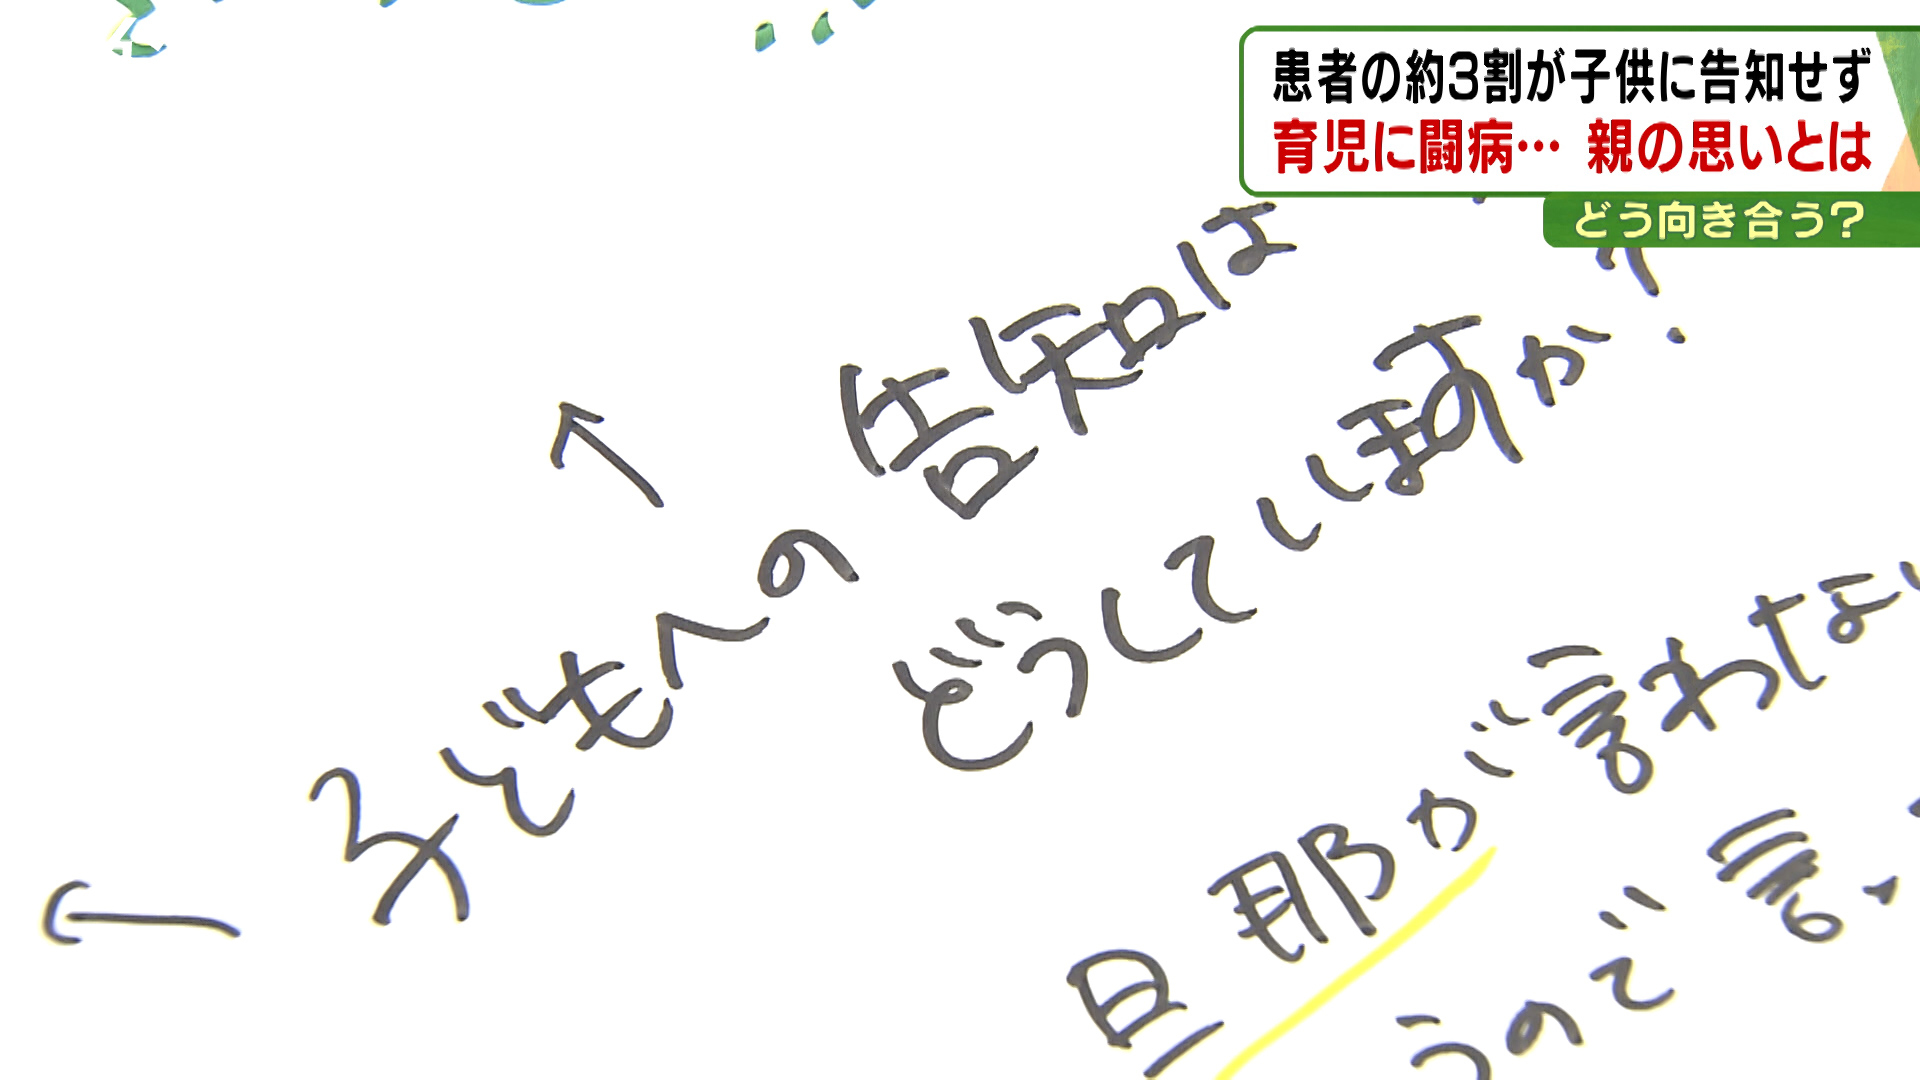 患者の約3割が子供に告知せず
育児に闘病… 親の思いとは
どう向き合う?
子どもへの告知は
どうしていますか?
旦那が言わな
うので言